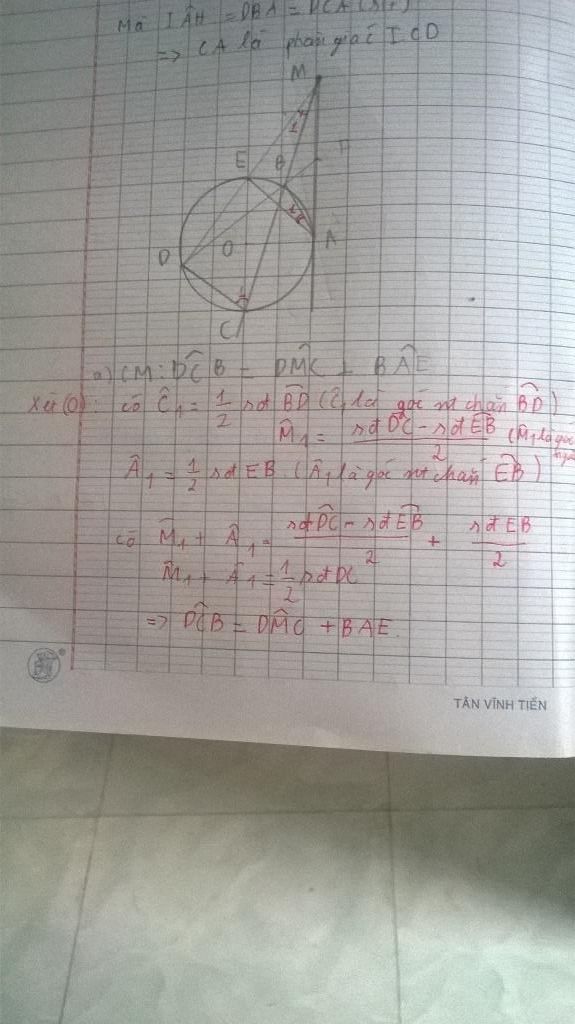 Mà IÂH = DBA = DCA
=> CA là phân giác ICD
M
1
E
B
H
A
D
O
1
C
a) CM: DĈB = DM̂C + BÂE
Xét (O): có Ĉ₁ = 1/2 sđ BD (C₁ là góc nt chắn BD)
M̂₁ = (sđ DC - sđ EB)/2 (M₁ là góc
Â₁ = 1/2 sđ EB (Â₁ là góc nt chắn EB)
có M̂₁ + Â₁ = (sđ DC - sđ EB)/2 + (sđ EB)/2
M̂₁ + Â₁ = 1/2 sđ DC
=> DĈB = DM̂C + BAE.
TÂN VĨNH TIẾN